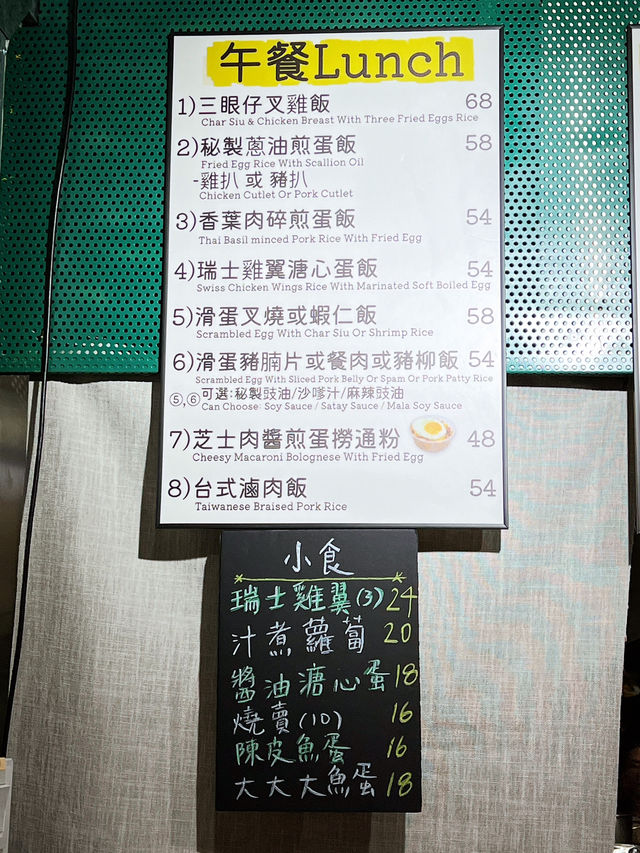 午餐Lunch
1)三眼仔叉雞飯 68
Char Siu & Chicken Breast With Three Fried Eggs Rice
2)秘製蔥油煎蛋飯 58
Fried Egg Rice With Scallion Oil
-雞扒 或 豬扒
Chicken Cutlet Or Pork Cutlet
3)香葉肉碎煎蛋飯 54
Thai Basil minced Pork Rice With Fried Egg
4)瑞士雞翼溏心蛋飯 54
Swiss Chicken Wings Rice With Marinated Soft Boiled Egg
5)滑蛋叉燒或蝦仁飯 58
Scrambled Egg With Char Siu Or Shrimp Rice
6)滑蛋豬腩片或餐肉或豬柳飯 54
Scrambled Egg With Sliced Pork Belly Or Spam Or Pork Patty Rice
⑤,⑥可選:秘製豉油/沙嗲汁/麻辣豉油
Can Choose: Soy Sauce / Satay Sauce / Mala Soy Sauce
7)芝士肉醬煎蛋撈通粉 48
Cheesy Macaroni Bolognese With Fried Egg
8)台式滷肉飯 54
Taiwanese Braised Pork Rice
小食
瑞士雞翼(3) 24
汁煮蘿蔔 20
醬油溏心蛋 18
燒賣(10) 16
陳皮魚蛋 16
大大大魚蛋 18